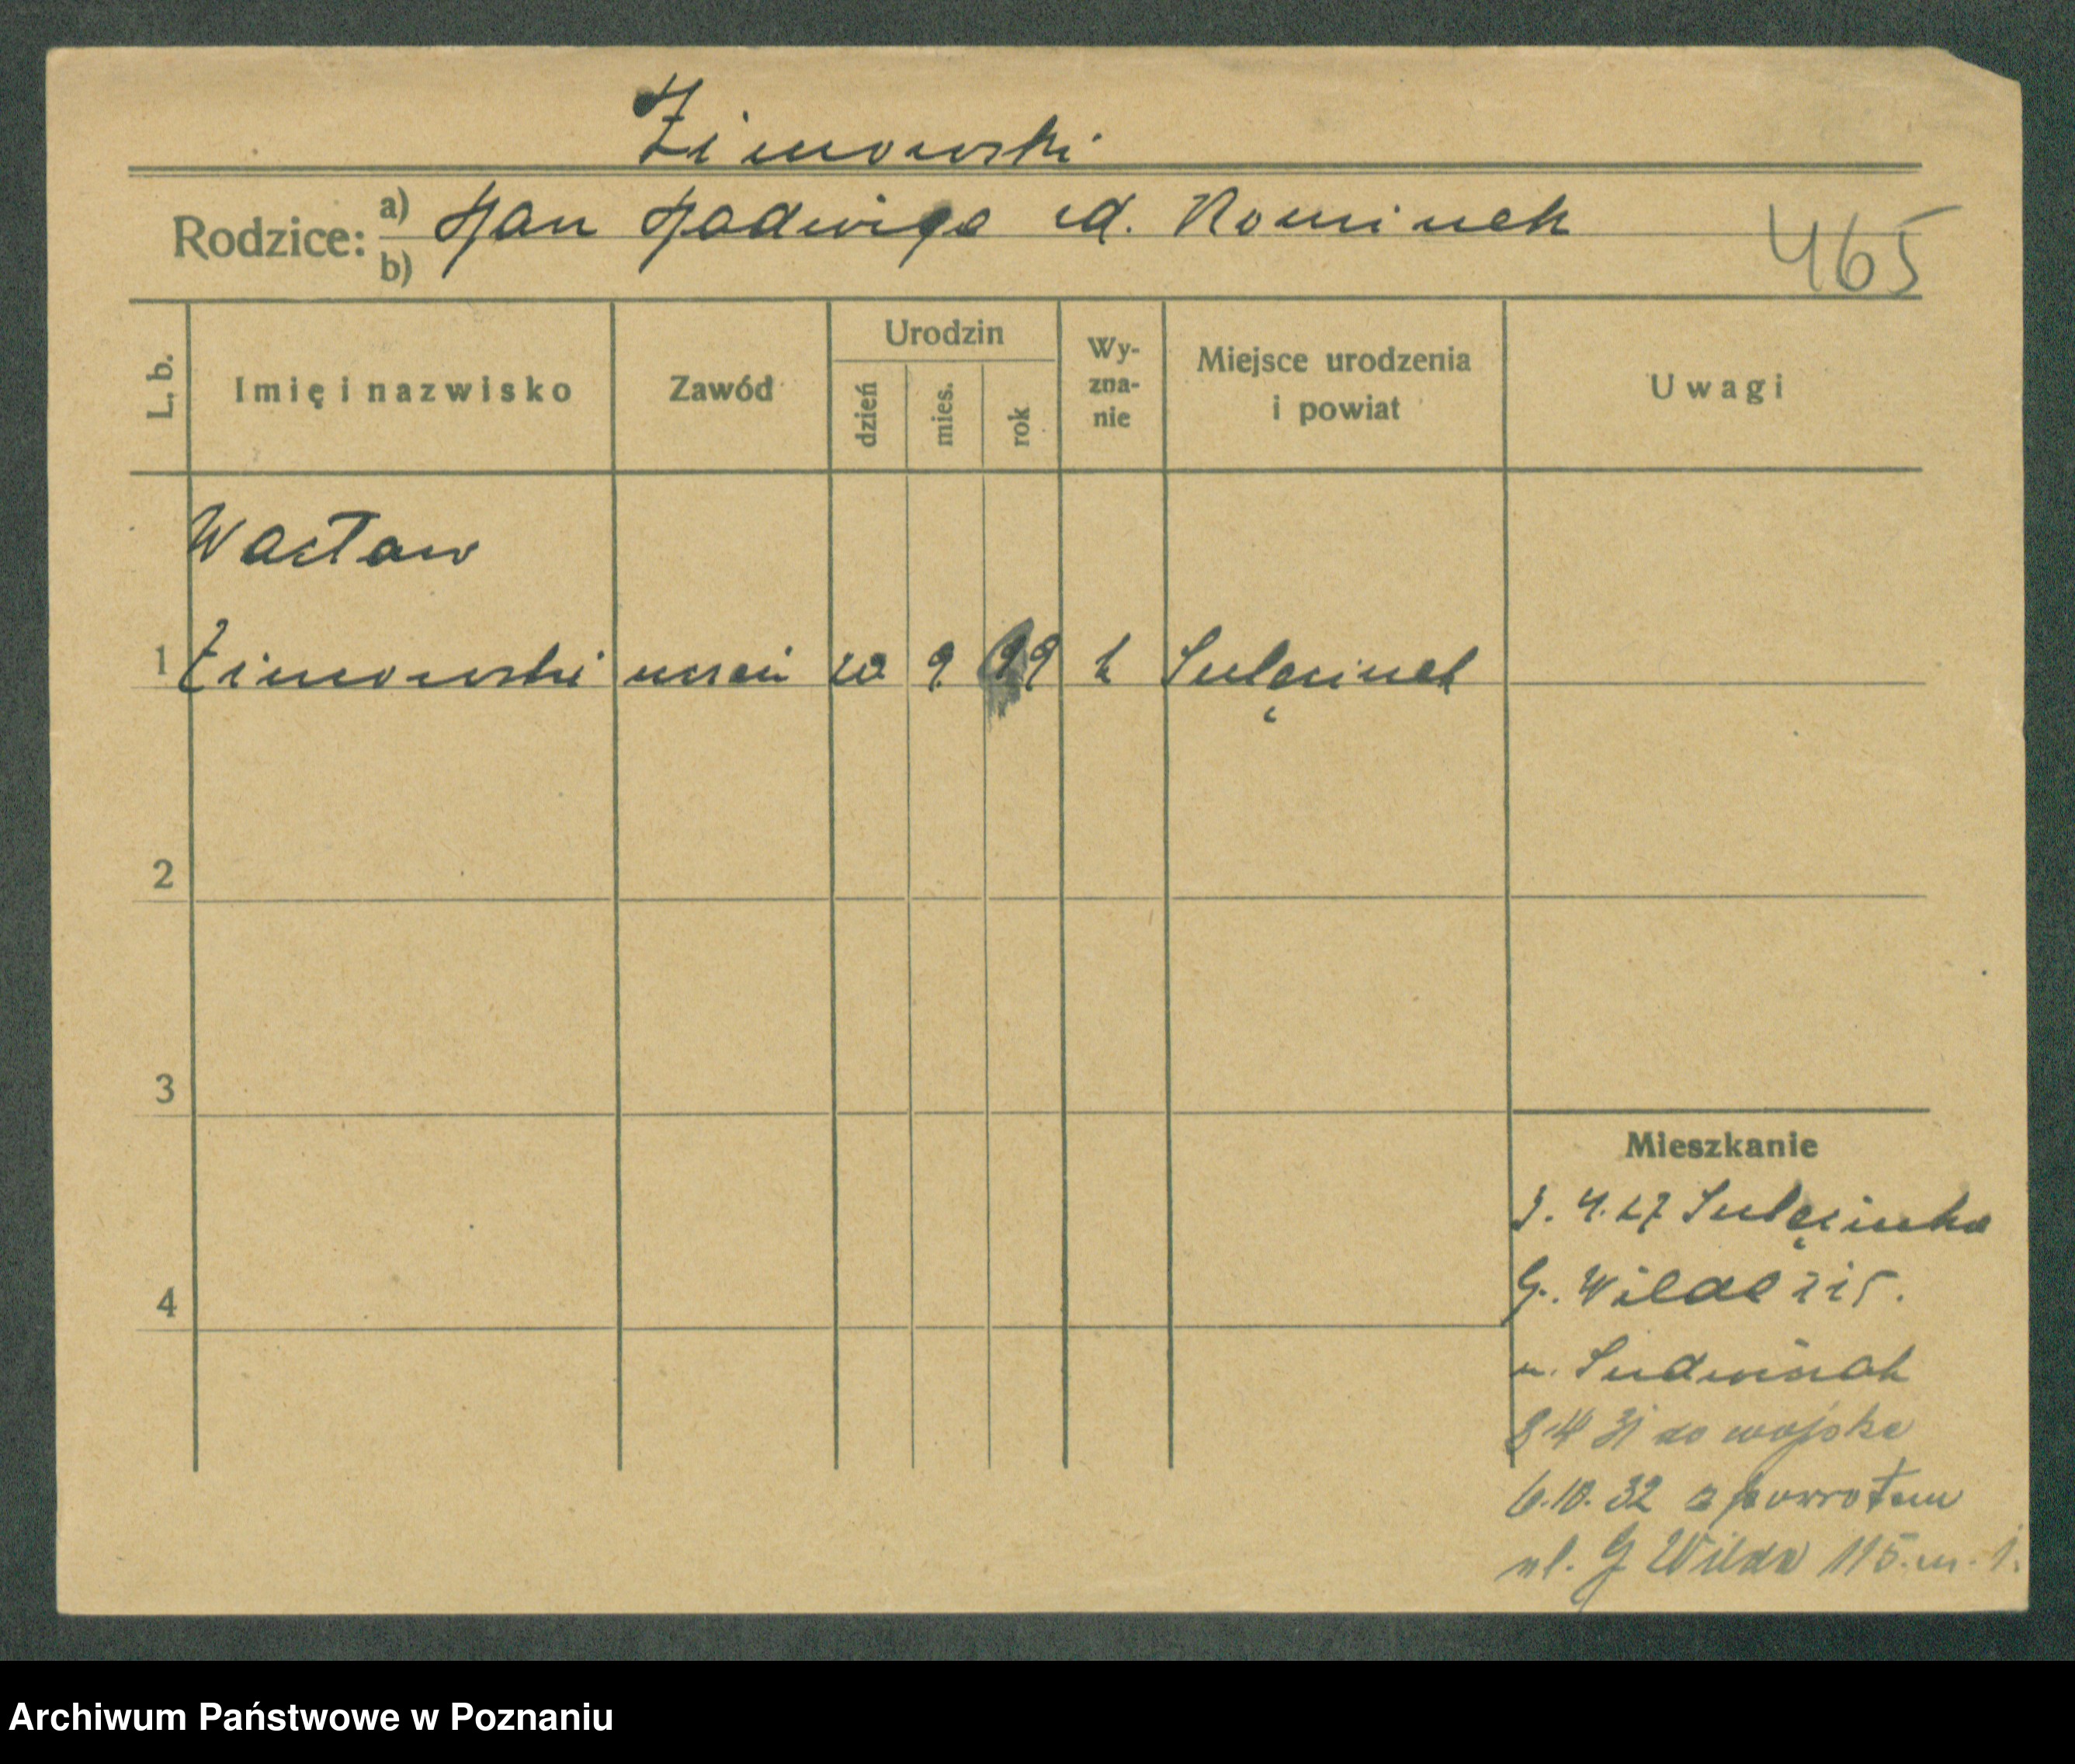 Zimowski
Rodzice: a) Jan Jadwiga d. Nominek
b)
465
L. b.
Imię i nazwisko
Zawód
Urodzin
dzień
mies.
rok
Wy-
zna-
nie
Miejsce urodzenia
i powiat
Uwagi
Wacław
1 Zimowski uczeń 20 9. 09 k Sulęcinek
2
3
Mieszkanie
3. 4. 27 Sulęcinka
4
G. Wilda 115.
u.
8 4 31 do wojska
6.10. 32 z powrotem
ul. G Wilda 115. m. 1.
Archiwum Państwowe w Poznaniu